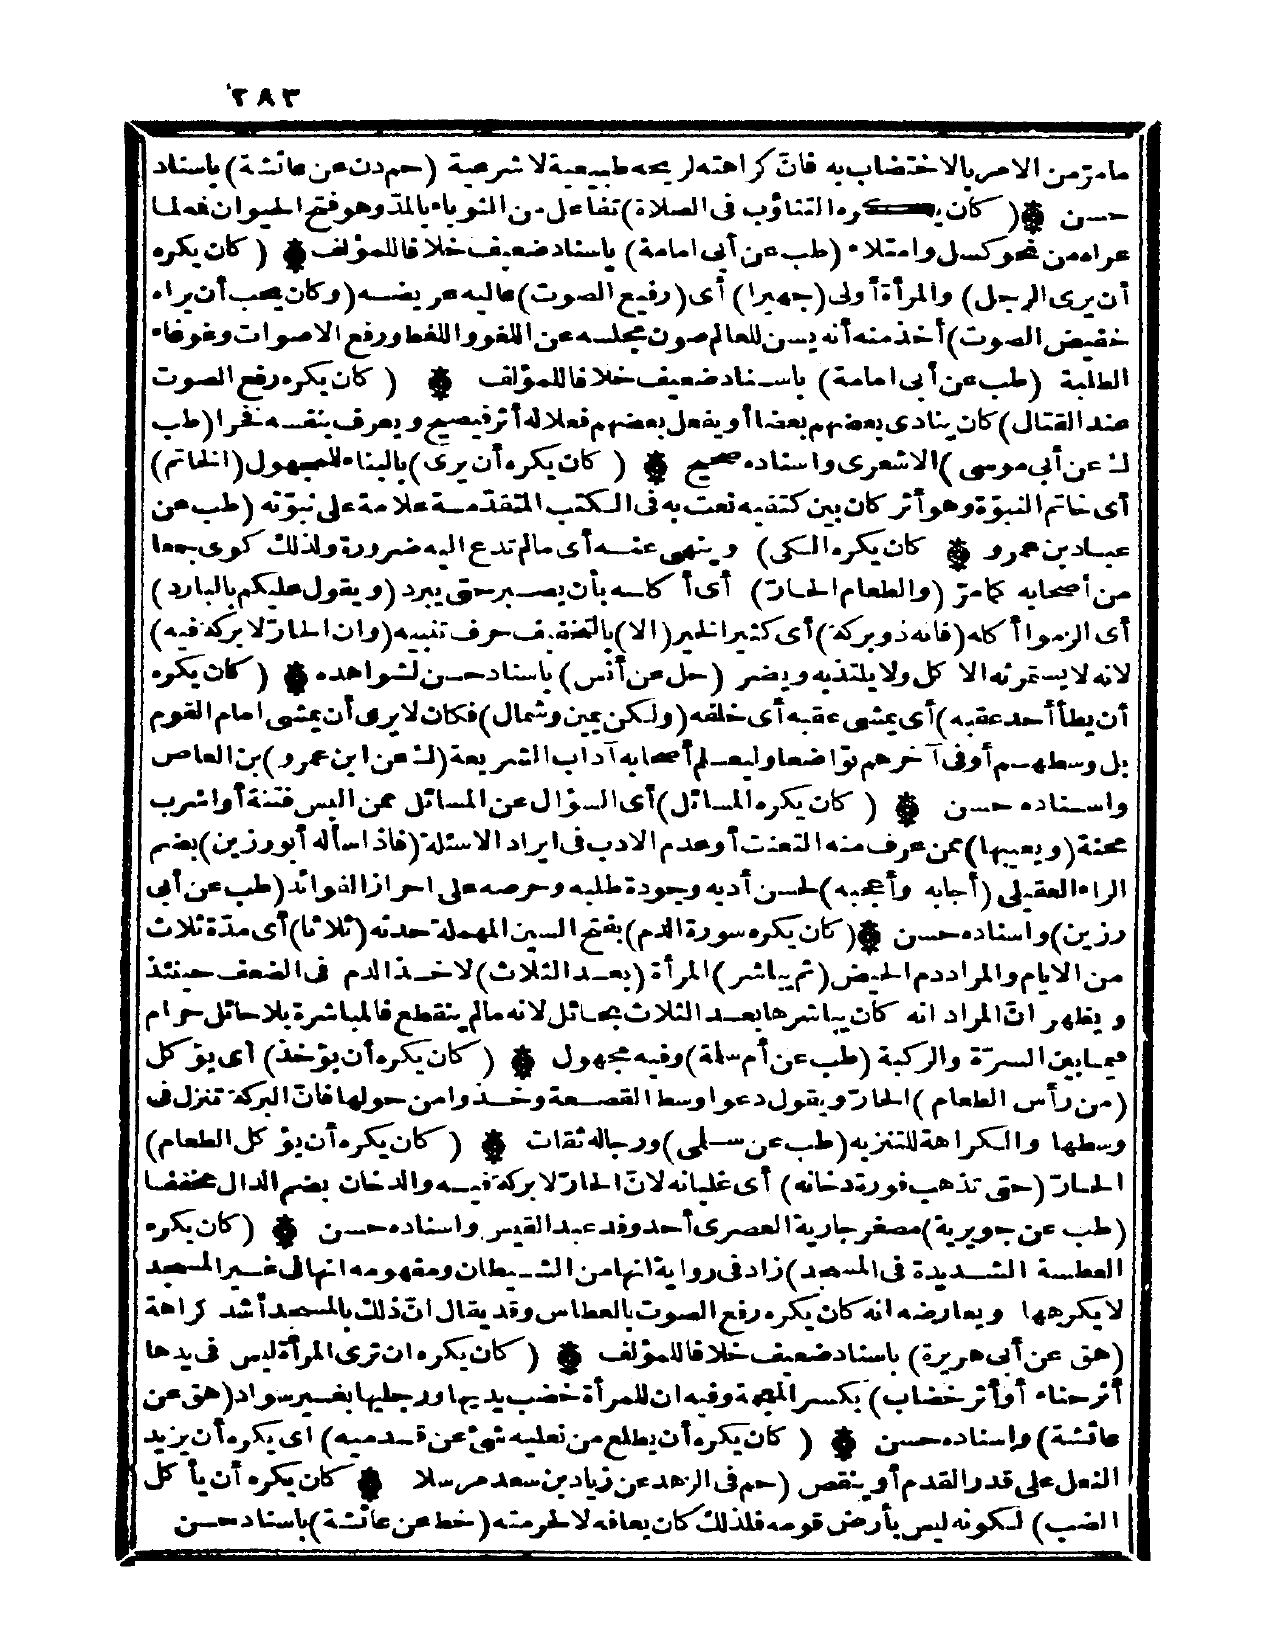 ٢٨٣
مامرّ من الامر بالاختضاب به فانّ كراهته لريحه طبيعية لا شرعية (حم دن عن عائشة) باسناد
حسن ۞ (كان يكره التثاؤب فى الصلاة) تفاعل من الثوباء بالمدّ وهو فتح الحيوان فه لما
عراه من نحو كسل وامتلاء (طب عن أبى امامة) باسناد ضعيف خلافا للمؤلف ۞ (كان يكره
أن يرى الرجل) والمرأة أولى (جهيرا) أى (رفيع الصوت) عاليه عريضه (وكان يحب أن يراه
خفيض الصوت) أخذ منه أنه يسن للعالم صون مجلسه عن اللغو واللغط ورفع الاصوات وغوغاء
الطلبة (طب عن أبى امامة) باسناد ضعيف خلافا للمؤلف ۞ (كان يكره رفع الصوت
عند القتال) كان ينادى بعضهم بعضا أو يفعل بعضهم فعلا له أثر فيصيح ويعرف بنفسه فخرا (طب
ك عن أبى موسى) الاشعرى واسناده صحيح ۞ (كان يكره أن يرى) بالبناء للمجهول (الخاتم)
أى خاتم النبوّة وهو أثر كان بين كتفيه نعت به فى الكتب المتقدّمة علامة على نبوّته (طب عن
عباد بن عمرو ۞ كان يكره الكى) وينهى عنه أى مالم تدع اليه ضرورة ولذلك كوى جمعا
من أصحابه كمامرّ (والطعام الحارّ) أى أكله بأن يصبر حتى يبرد (ويقول عليكم بالبارد)
أى الزموا أكله (فانه ذو بركة) أى كثير الخير (الا) بالتخفيف حرف تنبيه (وان الحارّ لا بركة فيه)
لانه لا يستمرئه الآكل ولا يلتذ به ويضر (حل عن أنس) باسناد حسن لشواهده ۞ (كان يكره
أن يطأ أحد عقبه) أى يمشى عقبه أى خلفه (ولكن يمين وشمال) فكان لا يرى أن يمشى امام القوم
بل وسطهم أو فى آخرهم تواضعا وليعلم أصحابه آداب الشريعة (ك عن ابن عمرو) بن العاص
واسناده حسن ۞ (كان يكره المسائل) أى السؤال عن المسائل ممن البس فتنة أو اشرب
محنة (ويعيبها) ممن عرف منه التعنت أو عدم الادب فى ايراد الاسئلة (فاذا سأله أبو رزين) بضم
الراء العقيلى (أجابه وأعجبه) لحسن أدبه وجودة طلبه وحرصه على احراز الفوائد (طب عن أبى
رزين) واسناده حسن ۞ (كان يكره سورة الدم) بفتح السين المهملة حدته (ثلاثا) أى مدّة ثلاث
من الايام والمراد دم الحيض (ثم يباشر) المرأة (بعد الثلاث) لاخذ الدم فى الضعف حينئذ
ويظهر انّ المراد انه كان يباشرها بعد الثلاث بحائل لانه مالم ينقطع فالمباشرة بلا حائل حرام
فيما بين السرّة والركبة (طب عن أم سلمة) وفيه مجهول ۞ (كان يكره أن يؤخذ) أى يؤكل
(من رأس الطعام) الحارّ ويقول دعوا وسط القصعة وخذوا من حولها فانّ البركة تنزل فى
وسطها والكراهة للتنزيه (طب عن سلمى) ورجاله ثقات ۞ (كان يكره أن يؤكل الطعام)
الحارّ (حتى تذهب فورة دخانه) أى غليانه لانّ الحارّ لا بركة فيه والدخان بضم الدال مخففا
(طب عن جويرية) مصغر جارية العصرى أحد وفد عبد القيس واسناده حسن ۞ (كان يكره
العطسة الشديدة فى المسجد) زاد فى رواية انها من الشيطان ومفهومه انها فى غير المسجد
لا يكرهها ويعارضه انه كان يكره رفع الصوت بالعطاس وقد يقال انّ ذلك بالمسجد أشد كراهة
(هق عن أبى هريرة) باسناد ضعيف خلافا للمؤلف ۞ (كان يكره ان ترى المرأة ليس فى يدها
أثر حناء أو أثر خضاب) بكسر المعجمة وفيه ان للمرأة خضب يديها ورجليها بغير سواد (هق عن
عائشة) واسناده حسن ۞ (كان يكره أن يطلع من نعليه شئ عن قدميه) أى يكره أن يزيد
النعل على قدر القدم أو ينقص (حم فى الزهد عن زياد بن سعد مرسلا ۞ كان يكره أن يأكل
الضب) لكونه ليس بأرض قومه فلذلك كان يعافه لا لحرمته (خط عن عائشة) باسناد حسن